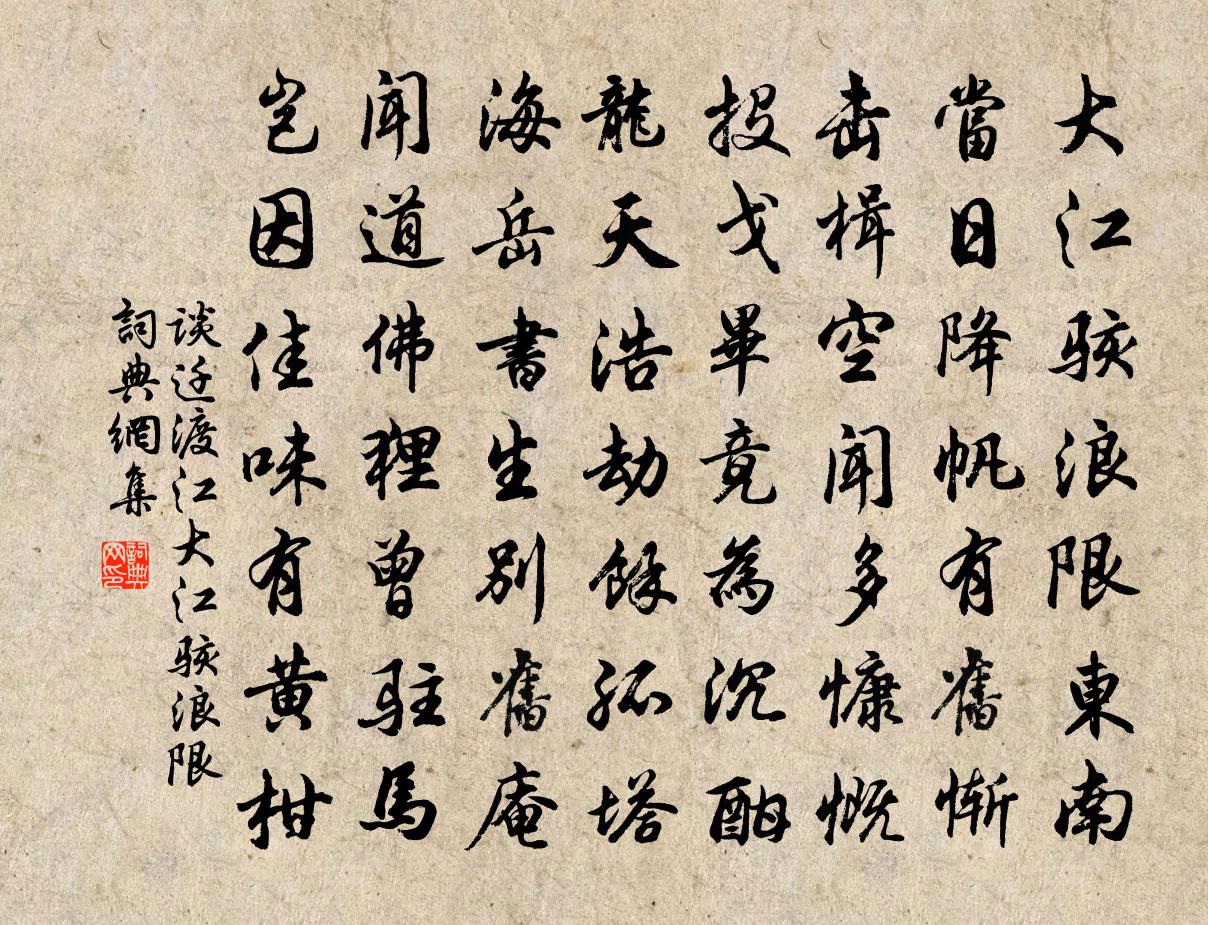 大江駭浪限東南
當日降帆有舊慚
击楫空聞多慷慨
投戈畢竟為沉酣
龍天浩劫餘孤塔
海岳書生別舊庵
聞道佛狸曾駐馬
岂因佳味有黃柑
谈迁渡江大江駭浪限
詞典網集
詞典网印